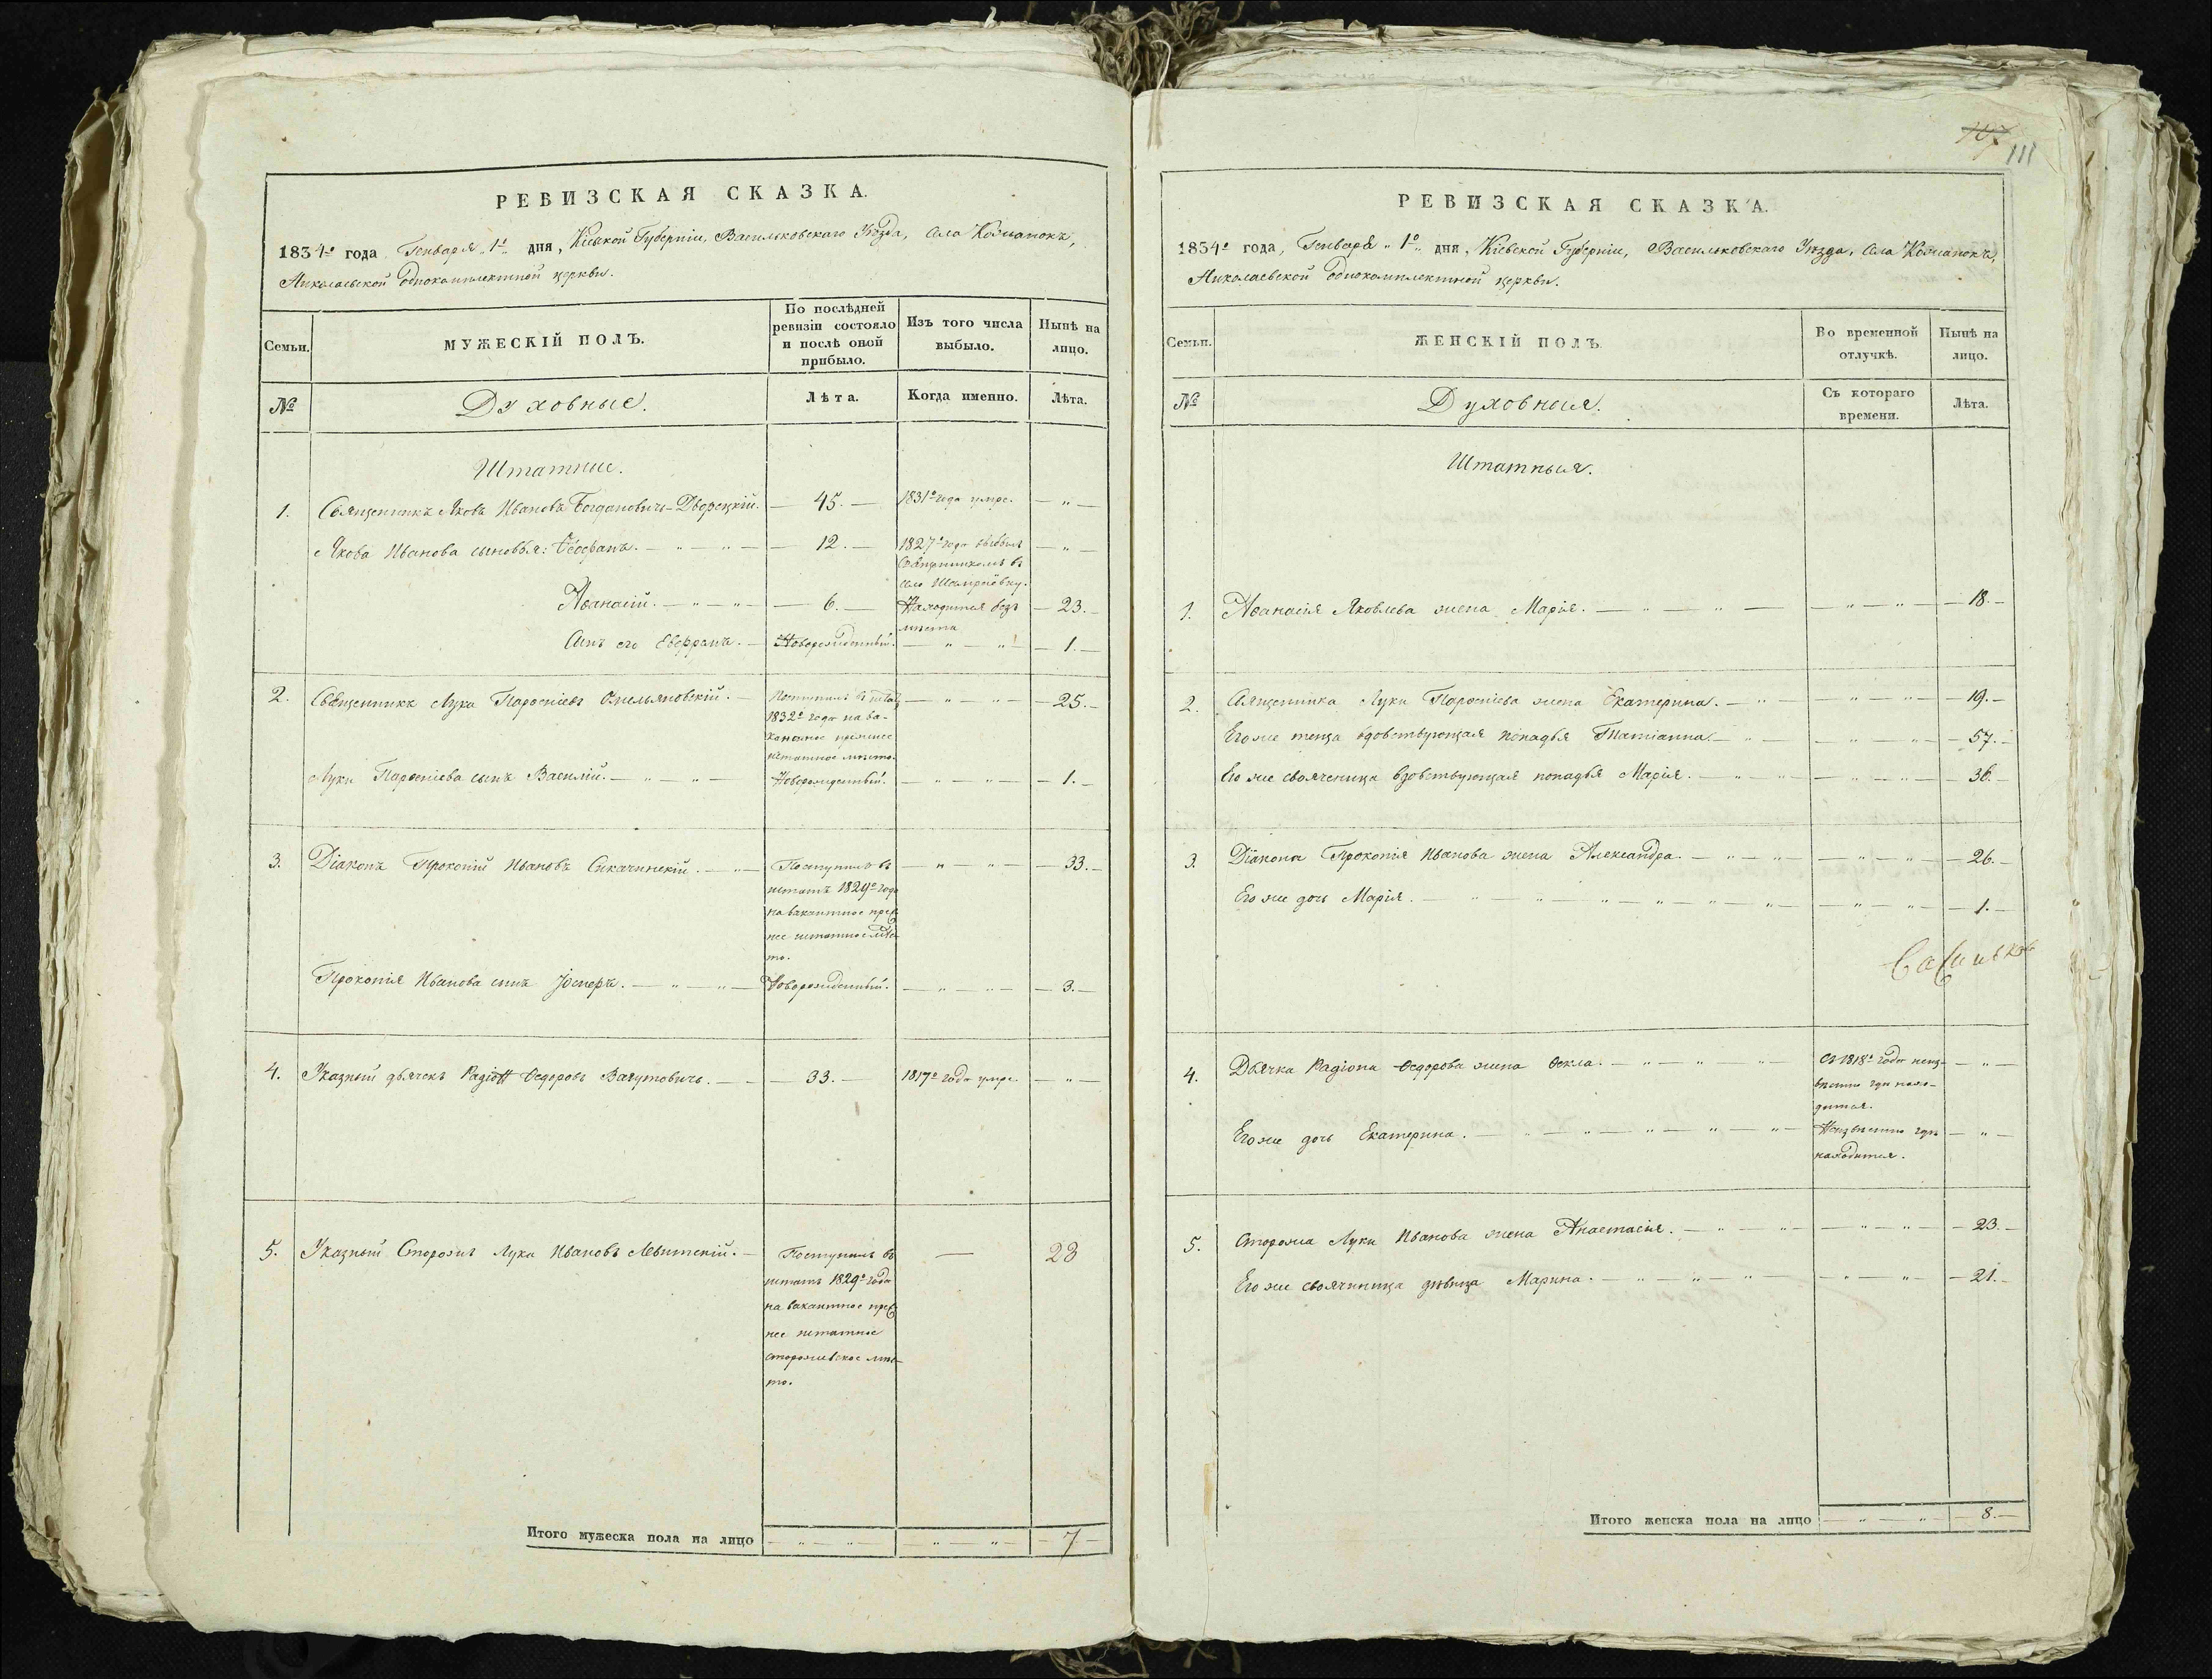 РЕВИЗСКАЯ СКАЗКА.
1834го года Генваря „1го„ дня, Кіевской Губерніи, Васильковскаго Уѣзда, Села Кожанокъ,
Николаевской однокомплектной церкви.
Семьи.
МУЖЕСКІЙ ПОЛЪ.
По послѣдней
ревизіи состояло
и послѣ оной
прибыло.
Изъ того числа
выбыло.
Нынѣ на
лицо.
№
Духовные.
Лѣта.
Когда именно.
Лѣта.
Штатные.
1. Священникъ Яковъ Ивановъ Богдановичъ-Дворецкій. — 45. — 1831го года умре. — „ —
Якова Иванова сыновья: Ѳеофанъ. — „ — „ — 12. — 1827го года выбылъ — „ —
Священникомъ въ
село Шамраевку.
Аѳанасій. — „ — „ — 6. — Находится безъ — 23. —
мѣста
Сынъ его Евфранъ. — Новорожденный. — „ — „ — 1. —
2. Священникъ Лука Парѳеніевъ Омельяновскій. — Поступилъ въ штатъ — „ — „ — 25. —
1832го года на ва-
кантное прежнее
штатное мѣсто.
Луки Парѳеніева сынъ Василій. — „ — „ — Новорожденный. — „ — „ — 1. —
3. Діаконъ Прокопій Ивановъ Сикачинскій. — „ — Поступилъ въ — „ — „ — 33. —
штатъ 1829го года
на вакантное преж
нее штатное мѣс
то.
Прокопія Иванова сынъ Іосифъ. — „ — „ — Новорожденный. — „ — „ — 3. —
4. Указный дьячекъ Радіонъ Ѳедоровъ — — 33. — 1817го года умре. — „ —
5. Указный Сторожъ Лука Ивановъ Левитскій. — Поступилъ въ — 23
штатъ 1829го года
на вакантное преж
нее штатное
сторожевское мѣс-
то.
Итого мужеска пола на лицо — „ — „ — — „ — „ — — 7 —
107 111
РЕВИЗСКАЯ СКАЗКА.
1834го года, Генваря „1го„ дня, Кіевской Губерніи, Васильковскаго Уѣзда, Села Кожанокъ,
Николаевской однокомплектной церкви.
Семьи.
ЖЕНСКІЙ ПОЛЪ.
Во временной
отлучкѣ.
Нынѣ на
лицо.
№
Духовныя.
Съ котораго
времени.
Лѣта.
Штатныя.
1. Аѳанасія Яковлева жена Марія. — „ — „ — — „ — „ — — 18. —
2. Священника Луки Парѳеніева жена Екатерина. — „ — — „ — „ — — 19. —
Его же теща вдовствующая попадья Татіанна. — „ — — „ — „ — — 57. —
Его же свояченица вдовствующая попадья Марія. — „ — „ — — „ — „ — — 36. —
3. Діакона Прокопія Иванова жена Александра. — „ — „ — — „ — „ — — 26. —
Его же дочь Марія. — „ — „ — „ — „ — „ — „ — — „ — „ — — 1. —
4. Дьячка Радіона Ѳедорова жена Ѳекла. — „ — „ — „ — Съ 1818го года неиз- — „ —
вѣстно гдѣ нахо-
дится.
Его же дочь Екатерина. — „ — „ — „ — „ — „ — Неизвѣстно гдѣ — „ —
находится.
5. Сторожа Луки Иванова жена Анастасія. — „ — „ — — „ — „ — — 23. —
Его же своячиница дѣвица Марина. — „ — „ — „ — „ — „ — 21. —
Итого женска пола на лицо — „ — „ — — 8. —